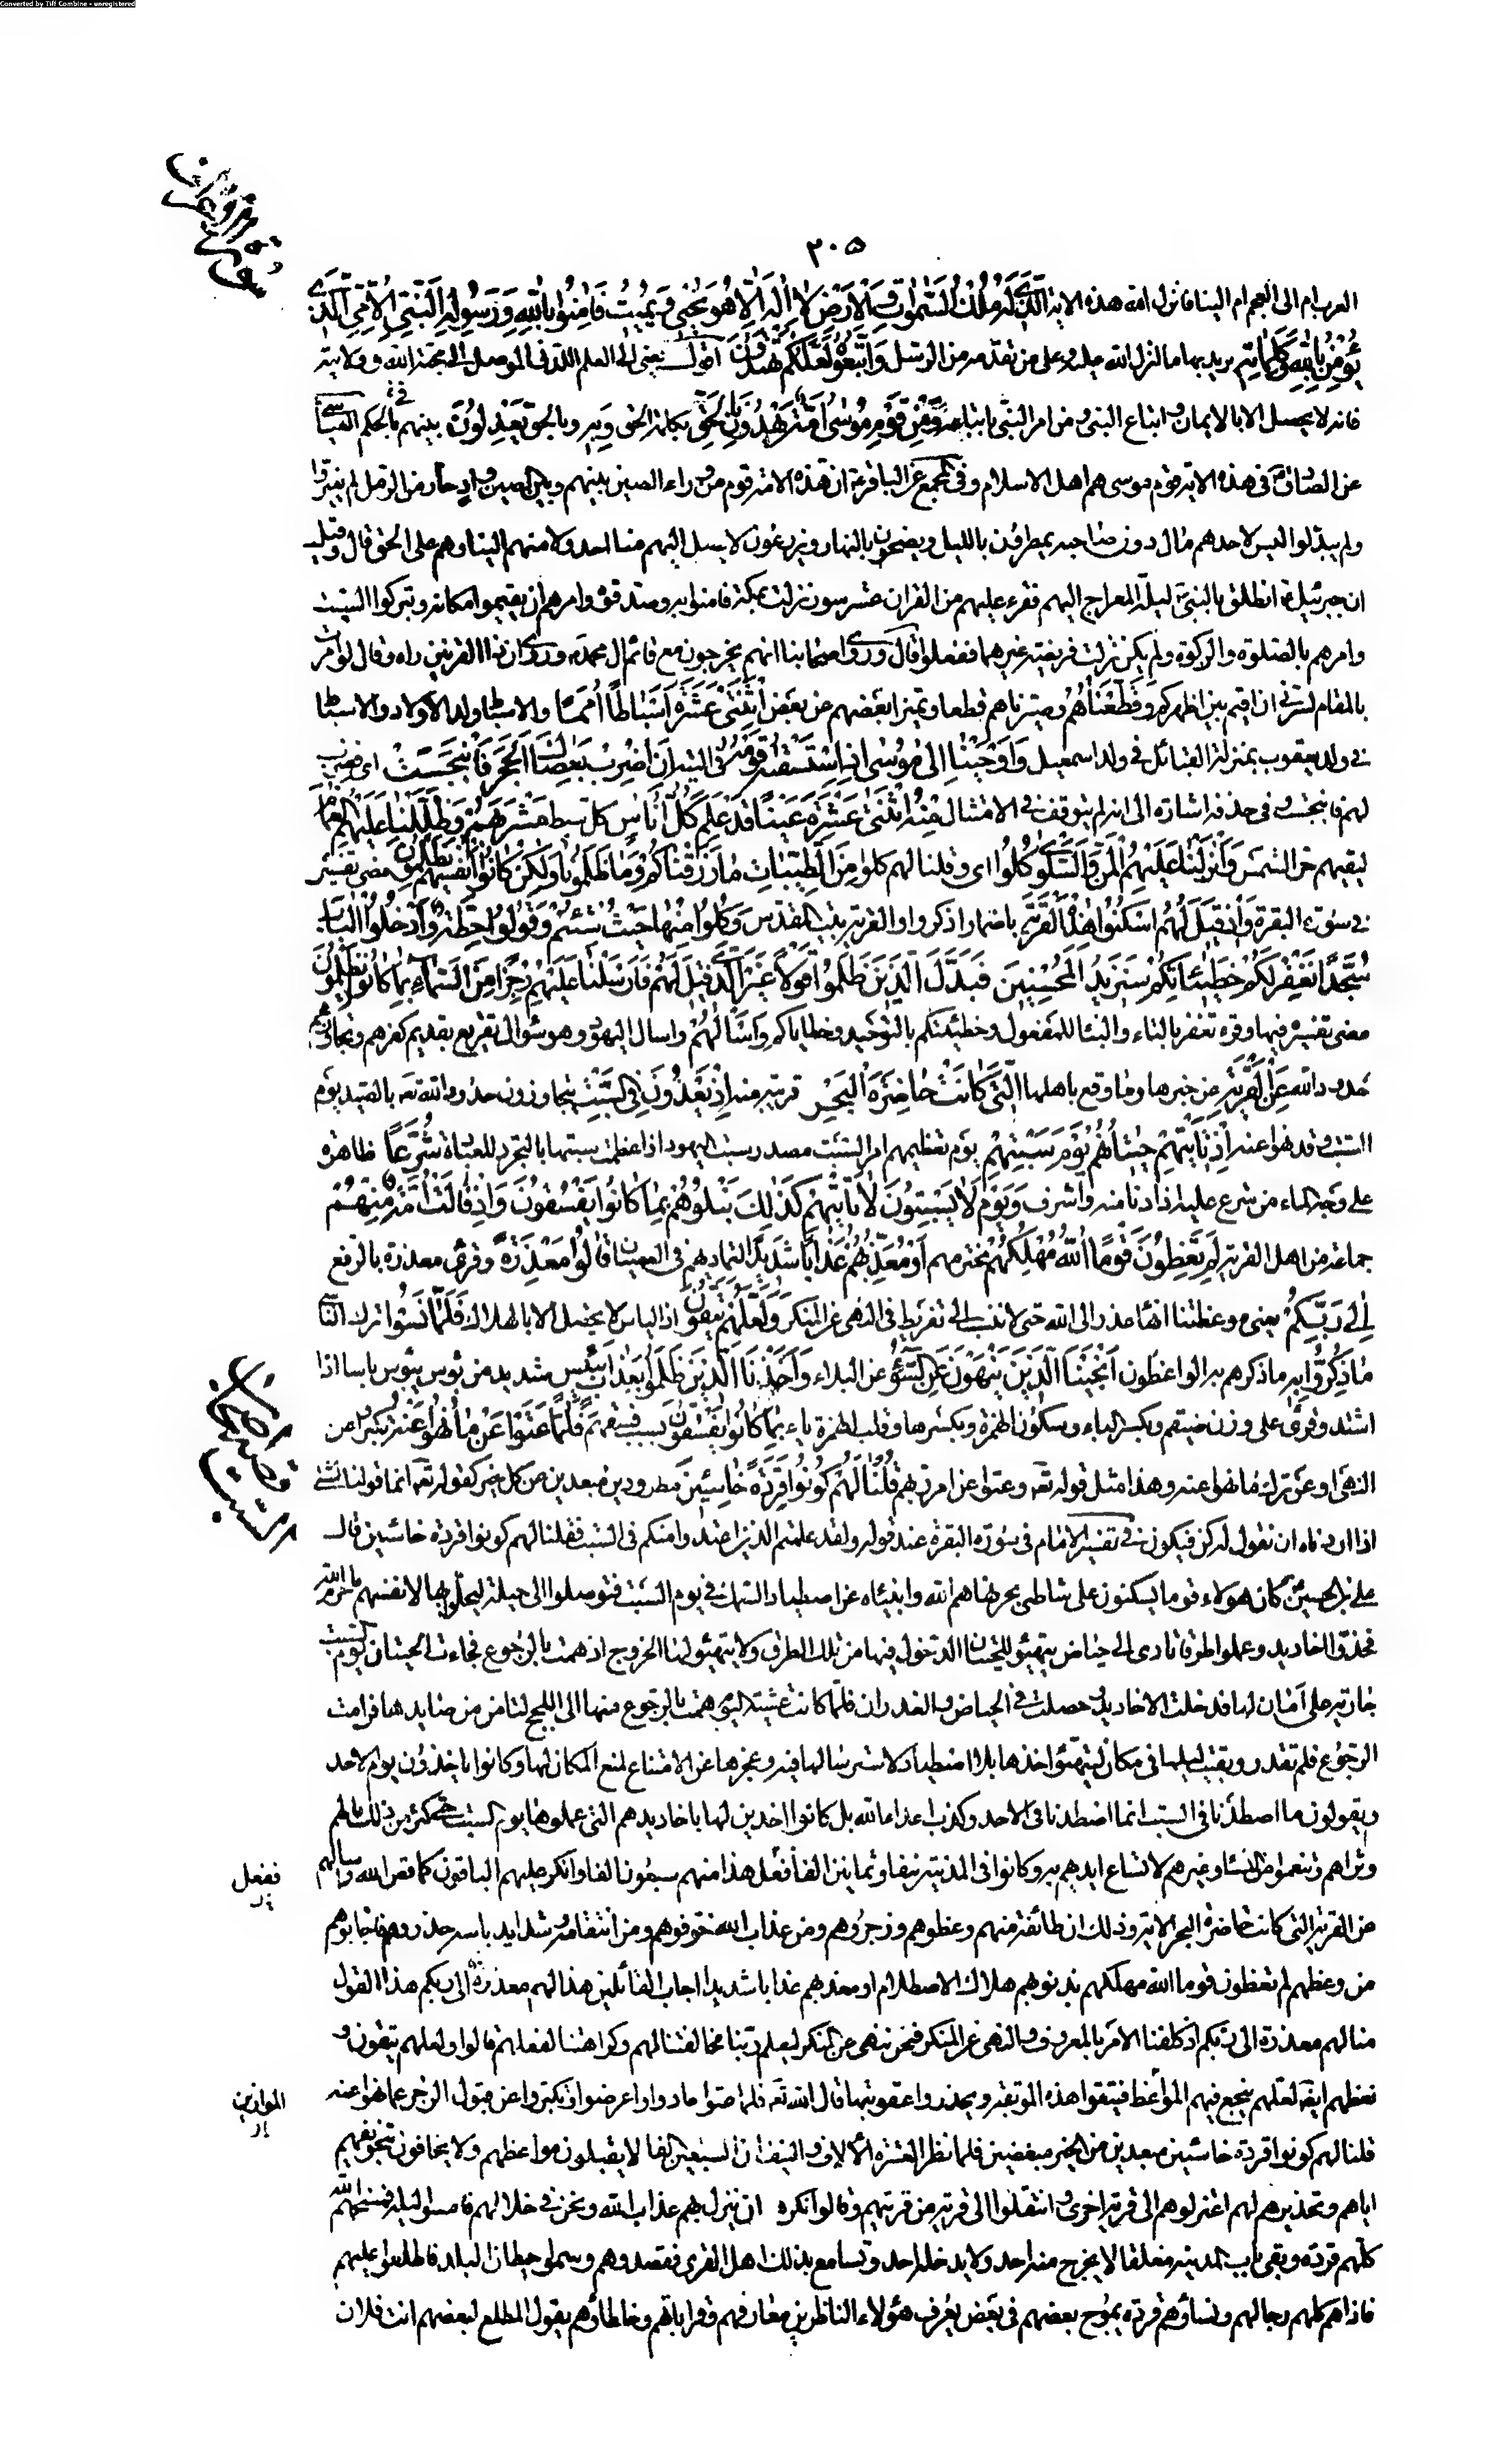 Converted by Tiff Combine - unregistered
٢٠٥
العرب ام الى العجم ام الينا فانزل الله هذه الاية الَّذِي لَهُ مُلْكُ السَّمٰواتِ وَالْاَرْضِ لا اِلٰهَ اِلَّا هُوَ يُحْيِي وَيُمِيتُ فَاٰمِنُوا بِاللهِ وَرَسُولِهِ النَّبِيِّ الْاُمِّيِّ الَّذِي
يُؤْمِنُ بِاللهِ وَكَلِمَاتِهِ يريد بها ما انزل الله عليه وعلى من تقدمه من الرسل وَاتَّبِعُوهُ لَعَلَّكُمْ تَهْتَدُونَ اقول يعني الى العلم اللدني الموصل الى محبة الله وولايته
فانه لا يحصل الا بالايمان واتباع النبي ومن امر النبي باتباعه وَمِنْ قَوْمِ مُوسٰى اُمَّةٌ يَهْدُونَ بِالْحَقِّ بكلمة الحق وَبِهِ وبالحق يَعْدِلُونَ بينهم في الحكم العياشي
عن الصادق في هذه الاية قوم موسى هم اهل الاسلام وفي المجمع عن الباقر ان هذه الامة قوم من وراء الصين بينهم وبين الصين واد حار من الرمل لم يغيروا
ولم يبدلوا ليس لاحدهم مال دون صاحبه يمطرون بالليل ويضحون بالنهار ويزرعون لا يصل اليهم منا احد ولا منهم الينا وهم على الحق قال وقيل
ان جبرئيل انطلق بالنبي ليلة المعراج اليهم فقرء عليهم من القران عشر سور نزلت بمكة فامنوا به وصدقوه وامرهم ان يقيموا مكانهم ويتركوا السبت
وامرهم بالصلوة والزكوة ولم يكن نزلت فريضة غيرهما ففعلوا قال وروى اصحابنا انهم يخرجون مع قائم ال محمد وروى ان ذا القرنين راه وقال لو امرت
بالمقام لسرني ان اقيم بين اظهركم وَقَطَّعْنَاهُمُ وصيرناهم قطعا وتميزا بعضهم عن بعض اثْنَتَيْ عَشْرَةَ اَسْبَاطًا اُمَمًا والاسباط ولد الاولاد والاسباط
في ولد يعقوب بمنزلة القبائل في ولد اسمعيل وَاَوْحَيْنَا اِلٰى مُوسٰى اِذِ اسْتَسْقٰيهُ قَوْمُهُ في التيه اَنِ اضْرِبْ بِعَصَاكَ الْحَجَرَ فَانْبَجَسَتْ اى فضرب
لهم فانبجست وفي حذفه اشارة الى انه لم يتوقف في الامتثال مِنْهُ اثْنَتَا عَشْرَةَ عَيْنًا قَدْ عَلِمَ كُلُّ اُنَاسٍ كل سبط مَشْرَبَهُمْ وَظَلَّلْنَا عَلَيْهِمُ الْغَمَامَ
ليقيهم حر الشمس وَاَنْزَلْنَا عَلَيْهِمُ الْمَنَّ وَالسَّلْوٰى كُلُوا اى وقلنا لهم كلوا مِنْ طَيِّبَاتِ مَا رَزَقْنَاكُمْ وَمَا ظَلَمُونَا وَلٰكِنْ كَانُوا اَنْفُسَهُمْ يَظْلِمُونَ مضى تفسيره
في سورة البقرة وَاِذْ قِيلَ لَهُمُ اسْكُنُوا هٰذِهِ الْقَرْيَةَ باضمار اذكروا والقرية بيت المقدس وَكُلُوا مِنْهَا حَيْثُ شِئْتُمْ وَقُولُوا حِطَّةٌ وَادْخُلُوا الْبَابَ
سُجَّدًا نَغْفِرْ لَكُمْ خَطِيئَاتِكُمْ سَنَزِيدُ الْمُحْسِنِينَ فَبَدَّلَ الَّذِينَ ظَلَمُوا قَوْلًا غَيْرَ الَّذِي قِيلَ لَهُمْ فَاَرْسَلْنَا عَلَيْهِمْ رِجْزًا مِنَ السَّمَاءِ بِمَا كَانُوا يَظْلِمُونَ
مضى تفسيره فيها وقرء تغفر بالتاء والبناء للمفعول وخطيئتكم بالتوحيد وخطاياكم وَاسْاَلْهُمْ واسال اليهود وهو سؤال تقريع بقديم كفرهم وتجاوزهم
حدود الله عَنِ الْقَرْيَةِ عن خبرها وما وقع باهلها الَّتِي كَانَتْ حَاضِرَةَ الْبَحْرِ قريبة منه اِذْ يَعْدُونَ فِي السَّبْتِ يتجاوزون حدود الله تعه بالصيد يوم
السبت وقد نهوا عنه اِذْ تَاْتِيهِمْ حِيتَانُهُمْ يَوْمَ سَبْتِهِمْ يوم تعظيمهم امر السبت مصدر سبت اليهود اذا عظمت سبتها بالتجرد للعبادة شُرَّعًا ظاهرة
على وجه الماء من شرع عليه اذا دنا منه واشرف وَيَوْمَ لَا يَسْبِتُونَ لَا تَاْتِيهِمْ كَذٰلِكَ نَبْلُوهُمْ بِمَا كَانُوا يَفْسُقُونَ وَاِذْ قَالَتْ اُمَّةٌ مِنْهُمْ
جماعة من اهل القرية لِمَ تَعِظُونَ قَوْمًا اللهُ مُهْلِكُهُمْ مخترمهم اَوْ مُعَذِّبُهُمْ عَذَابًا شَدِيدًا لتماديهم في العصيان قَالُوا مَعْذِرَةً وقرئ معذرة بالرفع
اِلٰى رَبِّكُمْ يعني موعظتنا انهاء عذر الى الله حتى لا ننسب الى تفريط في النهي عن المنكر وَلَعَلَّهُمْ يَتَّقُونَ اذ الياس لا يحصل الا بالهلاك فَلَمَّا نَسُوا ترك الناسي
مَا ذُكِّرُوا بِهِ ما ذكرهم به الواعظون اَنْجَيْنَا الَّذِينَ يَنْهَوْنَ عَنِ السُّوءِ عن البلاء وَاَخَذْنَا الَّذِينَ ظَلَمُوا بِعَذَابٍ بَئِيسٍ شديد من بؤس يبؤس باسا اذا
اشتد وقرئ على وزن ضيقم وبكسر الباء وسكون الهمزة وبكسرها وقلب الهمزة ياء بِمَا كَانُوا يَفْسُقُونَ بسبب فسقهم فَلَمَّا عَتَوْا عَنْ مَا نُهُوا عَنْهُ تكبروا عن
النهي او عن ترك ما نهوا عنه وهذا مثل قوله تعه وعتوا عن امر ربهم قُلْنَا لَهُمْ كُونُوا قِرَدَةً خَاسِئِينَ مطرودين مبعدين عن كل خير كقوله تعه انما قولنا لشئ
اذا اردناه ان نقول له كن فيكون في تفسير الامام في سورة البقرة عند قوله ولقد علمتم الذين اعتدوا منكم في السبت فقلنا لهم كونوا قردة خاسئين قال
علي بن الحسين كان هؤلاء قوما يسكنون على شاطئ بحر نهاهم الله وانبياءه عن اصطياد السمك في يوم السبت فتوصلوا الى حيلة ليحلوا بها لانفسهم ما حرم الله
فخدوا اخاديد وعملوا طرقا تؤدى الى حياض يتهيؤ للحيتان الدخول فيها من تلك الطرق ولا يتهيؤ لها الخروج اذ همت بالرجوع فجاءت الحيتان يوم السبت
جارية على امان لها فدخلت الاخاديد وحصلت في الحياض والغدران فلما كانت عشية اليوم همت بالرجوع منها الى اللجج لتامن من صايدها فرامت
الرجوع فلم تقدر وبقيت ليلها في مكان يتهيؤ اخذها بلا اصطياد لاسترسالها فيه وعجزها عن الامتناع لمنع المكان لها وكانوا ياخذون يوم الاحد
ويقولون ما اصطدنا في السبت انما اصطدنا في الاحد وكذب اعداء الله بل كانوا اخذين لها باخاديدهم التي عملوها يوم السبت حتى كثر من ذلك مالهم
وثراهم وتنعموا بالنساء وغيرهم لاتساع ايديهم به وكانوا في المدينة نيفا وثمانين الفا فعل هذا منهم سبعون الفا وانكر عليهم الباقون كما قص الله واسالهم
عن القرية التي كانت حاضرة البحر الاية وذلك ان طائفة منهم وعظوهم وزجروهم ومن عذاب الله خوفوهم ومن انتقامه وشدايد باسه حذروهم فاجابوهم
من وعظهم لم تعظون قوما الله مهلكهم بذنوبهم هلاك الاصطلام او معذبهم عذابا شديدا اجاب القائلين هذا لهم معذرة الى ربكم هذا القول
منا لهم معذرة الى ربكم اذ كلفنا الامر بالمعروف والنهي عن المنكر فنحن ننهى عن المنكر ليعلم ربنا مخالفتنا لهم وكراهتنا لفعلهم قالوا ولعلهم يتقون و
نعظهم ايضا لعلهم ينجع فيهم المواعظ فيتقوا هذه الموبقة ويحذروا عقوبتها قال الله تعه فلما عتوا حادوا واعرضوا وتكبروا عن قبول الزجر عما نهوا عنه
قلنا لهم كونوا قردة خاسئين مبعدين من الخير مبغضين فلما نظر العشرة الالاف والنيف ان السبعين الفا لا يقبلون مواعظهم ولا يخافون بتخويفهم
اياهم وتحذيرهم لهم اعتزلوهم الى قرية اخرى وانتقلوا الى قرية من قريتهم وقالوا نكره ان ينزل بهم عذاب الله ونحن في خلالهم فامسوا ليلة فمسخهم الله
كلهم قردة وبقي باب المدينة مغلقا لا يخرج منه احد ولا يدخله احد وتسامع بذلك اهل القرى فقصدوهم وتسموا حيطان البلد فاطلعوا عليهم
فاذا هم كلهم رجالهم ونساؤهم قردة يموج بعضهم في بعض يعرف هؤلاء الناظرين معارفهم وقراباتهم وخلطاؤهم يقول المطلع لبعضهم انت فلان
قصة اصحاب السبت
ففعل
الموازين